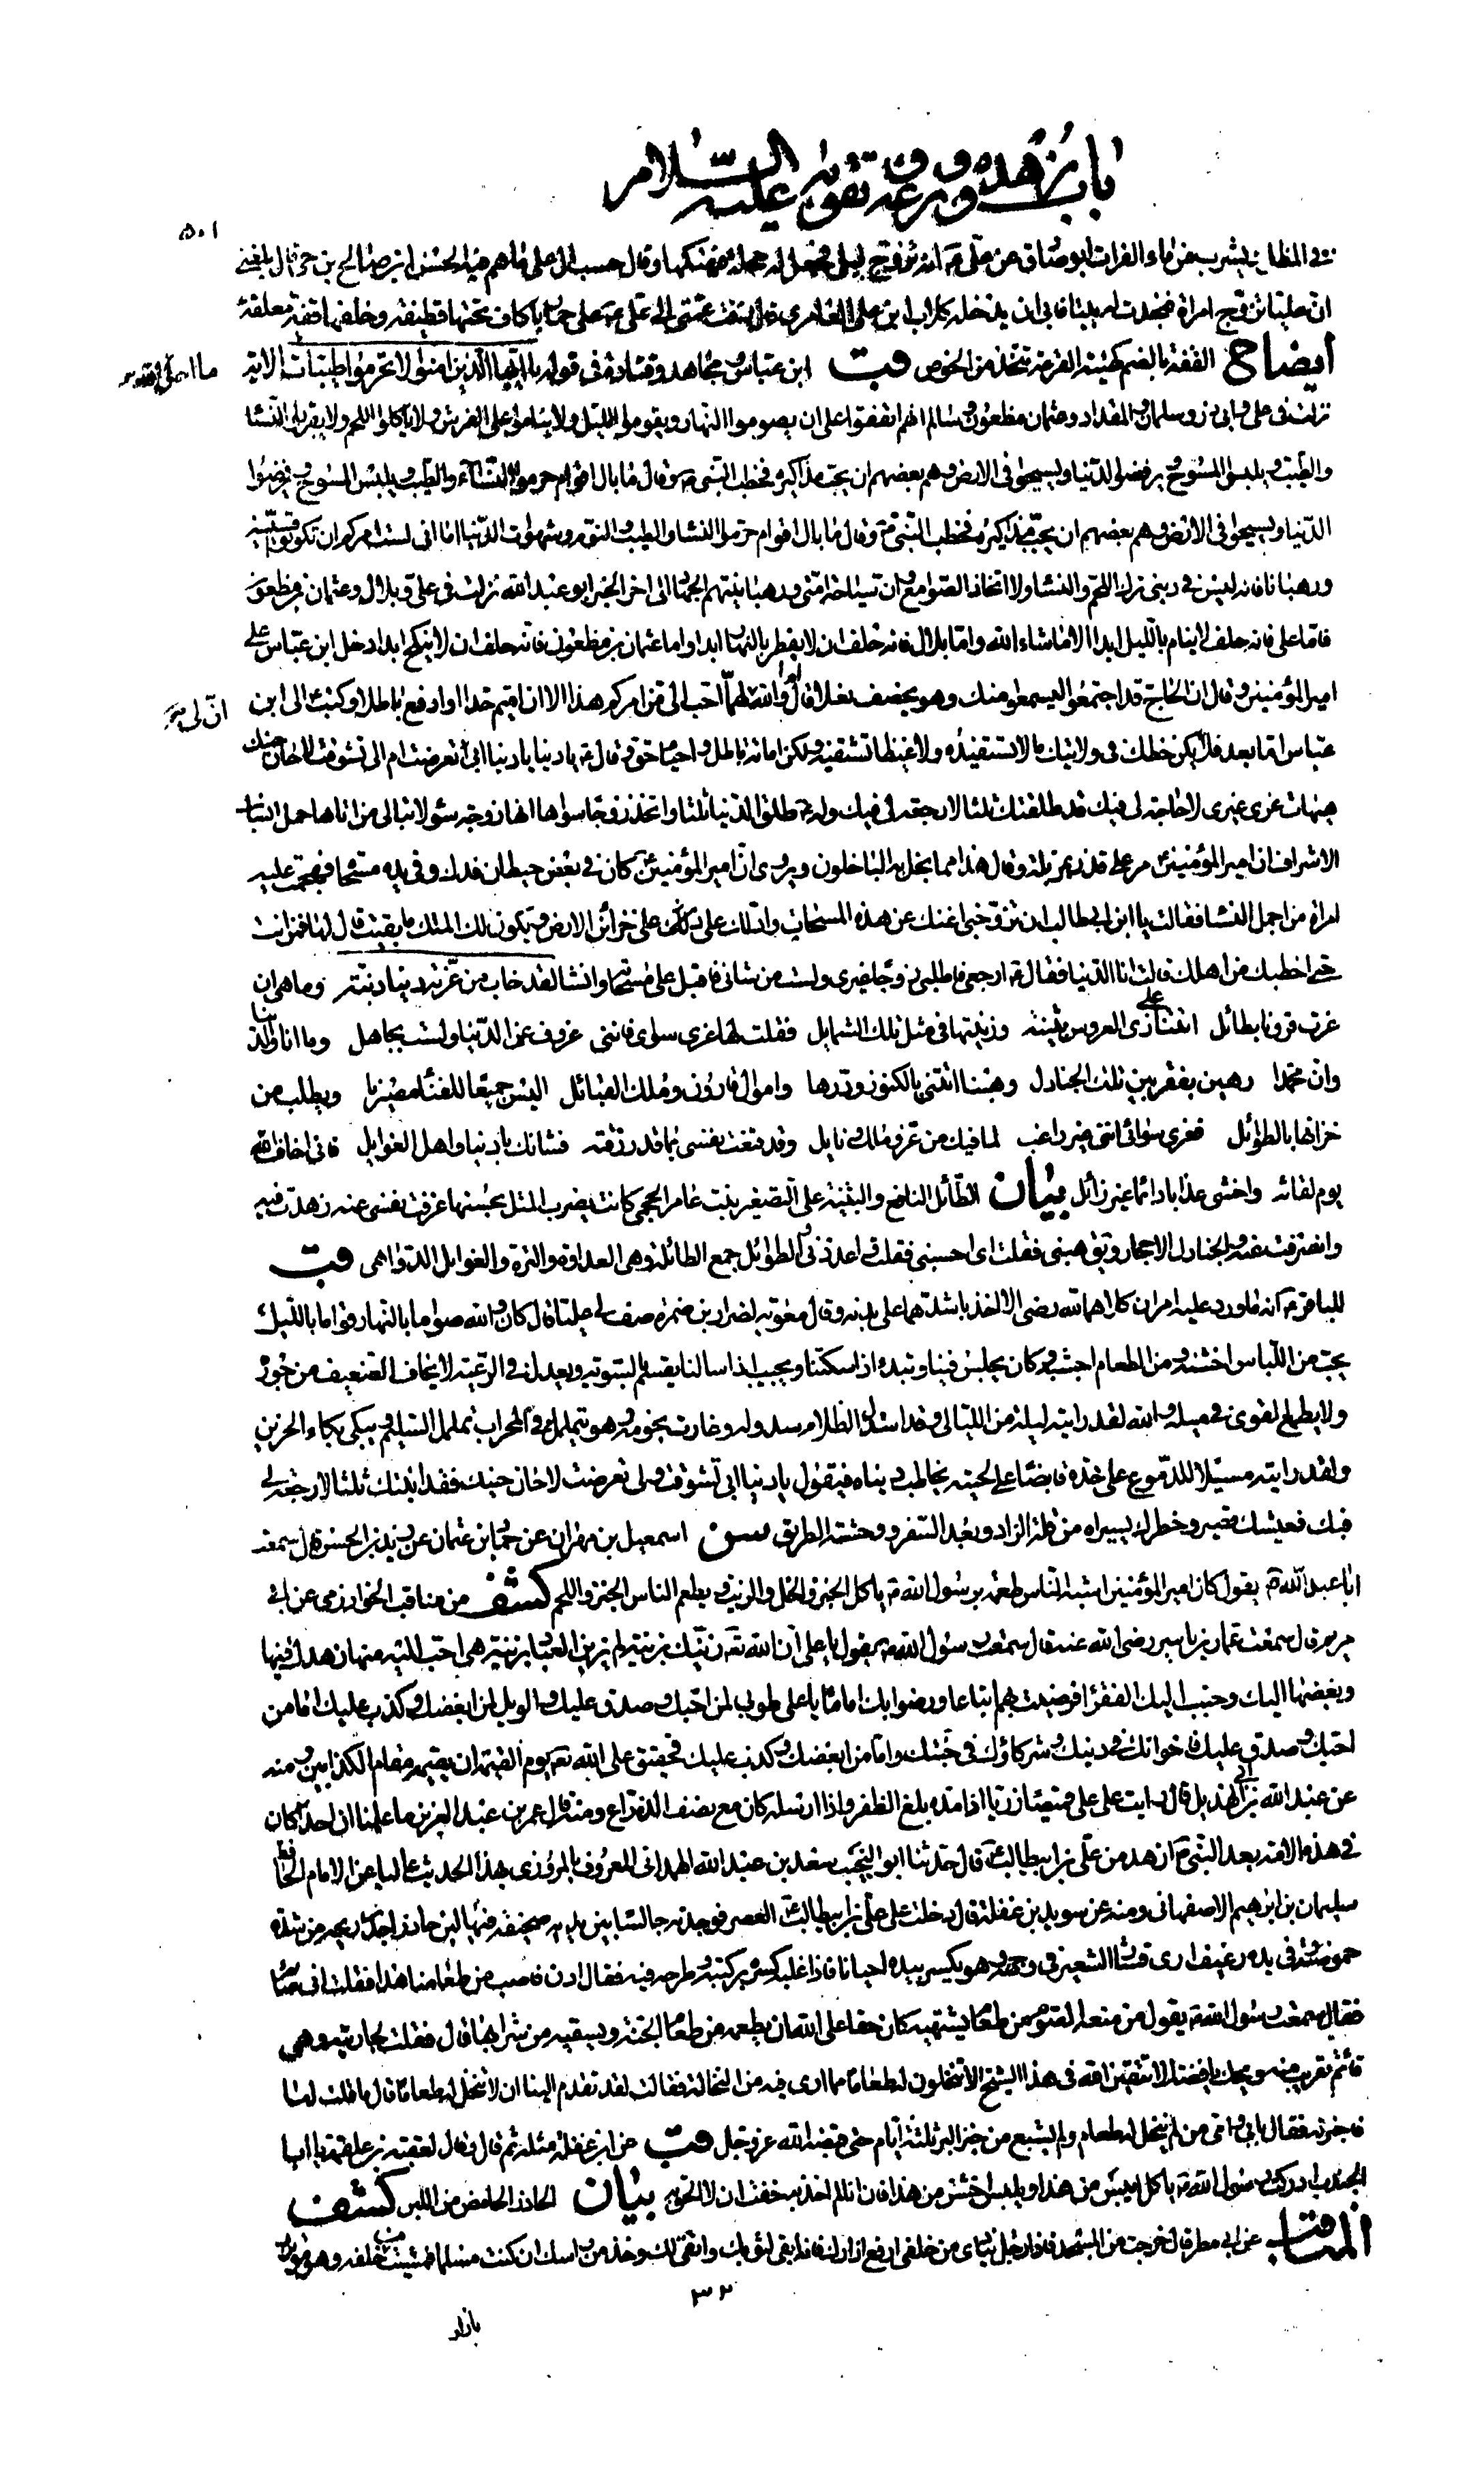 باب زهده و ورعه و تقواه عليه السّلام
۵۰۱
انّ عليّا تزوّج امراة فنجدت له بيتا فابى ان يدخله كلاب ابن على العامرى قال زفّت عمّتى الى علىّ ع على حمار باكاف تحتها قطيفة وخلفها قفة معلقة
أيضاح القفة بالضم كهيئة القرعة تتخذ من الخوص قب ابن عباس ومجاهد وقتادة فى قوله يا ايّها الّذين امنوا لا تحرّموا طيّبات الاية
نزلت فى على وابى ذر وسلمان والمقداد وعثمان بن مظعون وسالم انهم اتفقوا على ان يصوموا النهار ويقوموا الليل ولا يناموا على الفرش ولا ياكلوا اللحم ولا يقربوا النساء
والطيب ويلبسوا المسوح ويرفضوا الدنيا ويسيحوا فى الارض وهم بعضهم ان يجب مذاكيره فخطب النبى ص وقال ما بال اقوام حرموا النساء والطيب
الدّنيا ويسيحوا فى الارض وهم بعضهم ان يجبّ مذاكيره فخطب النّبى ص وقال ما بال اقوام حرّموا النساء والطيب والنوم وشهوات الدّنيا اما انى لست امركم ان تكونوا قسّيسين
ورهبانا فانه ليس فى دينى ترك اللحم والنساء ولا اتخاذ الصوامع وان سياحة امّتى ورهبانيتهم الجهاد الى اخر الخبر ابو عبد الله نزلت فى على وبلال وعثمان بن مظعون
فامّا على فانه حلف لا ينام بالليل ابدا الا ما شاء الله وامّا بلال فانه حلف ان لا يفطر بالنهار ابدا واما عثمان بن مظعون فانه حلف ان لا ينكح ابدا دخل ابن عباس على
امير المؤمنين وقال ان الحاج قد اجتمعوا ليسمعوا منك وهو يخصف نعلا قال اما والله لهما احب الى من امركم هذا الا ان اقيم حدا او ادفع باطلا وكتب ع الى ابن
عباس امّا بعد فلا يكن حظك فى ولايتك ما لا تستفيده ولا غيظا تشتفيه ولكن اماتة باطل واحياء حق وقال ع يا دنيا يا دنيا ابى تعرضت ام الى تشوقت لا حان حينك
هيهات غرى غيرى لا حاجة لى فيك قد طلقتك ثلثا لا رجعة لى فيك وله ع طلق الدنيا ثلثا واتخذ زوجا سواها انها زوجة سوء لا تبالى من اتاها جمل انساب
الاشراف ان امير المؤمنين مر على قذر بمزبلة وقال هذا مما بخل به الباخلون ويروى انّ امير المؤمنين كان فى بعض حيطان فدك وفى يده مسحاة فهجمت عليه
امراة من اجمل النساء فقالت يا ابن ابى طالب ان تزوجنى اغنك عن هذه المسحاة وادلك على خزائن الارض ويكون لك الملك ما بقيت قال لها فمن انت
حتى اخطبك من اهلك قالت انا الدنيا فقال ع ارجعى فاطلبى زوجا غيرى ولست من شانى فاقبل على مسحاته وانشا لقد خاب من غرته دنيا دنيّة وما هى ان
غرت قرونا بطائل اتتنا على زى العروس بثينة وزينتها فى مثل تلك الشمايل فقلت لها غرى سواى فاننى عزوف عن الدّنيا ولست بجاهل وما انا والدنيا
وان محمّدا رهين بقفر بين تلك الجنادل وهبنا اتتنى بالكنوز ودرها واموال قارون وملك القبائل اليس جميعا للفناء مصيرنا ويطلب من
خزانها بالطوائل فغرى سوائى اننى غير راغب لما فيك من عز وملك ونايل وقد قنعت نفسى بما قد رزقته فشانك يا دنيا واهل الغوايل فانى اخاف الله
يوم لقائه واخشى عذابا دائما غير زائل بيان الطّائل النافع والبثينة على التصغير بنت عامر الجمحى كانت يضرب المثل بحسنها عزفت نفسى عنه زهدت فيه
وانصرفت عنه والجنادل الاحجار وقوله هبنى فقلت اى احسبنى فقلت اعددنى والطوائل جمع الطائلة وهى العداوة والترة والغوايل الدّواهى قب
الباقر ع انه ما ورد عليه امران كلاهما لله رضى الا اخذ باشدّهما على بدنه وقال معوية لضرار بن ضمرة صف لى عليّا قال كان والله صوّاما بالنهار قوّاما بالليل
يحب من اللباس اخشنه ومن الطعام اجشبه وكان يجلس فينا ويبتدى اذا سكتنا ويجيب اذا سالنا يقسم بالسّوية ويعدل فى الرّعية لا يخاف الضعيف من جوره
ولا يطمع القوى فى ميله والله لقد رايته ليلة من الليالى وقد اسبل الظلام سدوله وغارت نجومه وهو يتململ فى المحراب تململ السّليم ويبكى بكاء الحزين
ولقد رايته مسيّلا للدّموع على خدّه قابضا على لحيته يخاطب دنياه فيقول يا دنيا ابى تشوقت ولى تعرضت لا حان حينك فقد ابنتك ثلثا لا رجعة لى
فيك فعيشك قصير وخطرك يسير اه من قلة الزاد وبعد السّفر ووحشة الطريق سن اسمعيل بن مهران عن حماد بن عثمان عن زيد بن الحسن قال سمعت
ابا عبد الله ع يقول كان امير المؤمنين اشبه الناس طعمة برسول الله ص ياكل الخبز والخل والزيت ويطعم الناس الخبز واللحم كشف من مناقب الخوارزمى عن ابى
مريم قال سمعت عمار بن ياسر رضى الله عنه قال سمعت رسول الله ص يقول يا على انّ الله تع زيّنك بزينة لم يزين العباد بزينة هى احبّ اليه منها زهدك فيها
وبغضها اليك وحبب اليك الفقراء فرضيت بهم اتباعا ورضوا بك اماما يا على طوبى لمن احبّك وصدق عليك والويل لمن ابغضك وكذب عليك امّا من
احبّك وصدق عليك فاخوانك فى دينك وشركاؤك فى جنّتك وامّا من ابغضك وكذب عليك فحقيق على الله تع يوم القيمة ان يقيمه مقام الكذابين ومنه
عن عبد الله بن ابى الهذيل قال رايت على على قميصا زريّا اذا مدّه بلغ الظفر واذا ارسله كان مع نصف الذراع ومنه قال عمر بن عبد العزيز ما علمنا ان احدا كان
فى هذه الامة بعد النّبى ص ازهد من علىّ بن ابيطالب قال حدّثنا ابو النجيب سعد بن عبد الله الهمدانى المعروف بالمروزى بهذا الحديث عاليا عن الامام الحافظ
سليمان بن ابرهيم الاصفهانى ومنه عن سويد بن غفلة قال دخلت على على بن ابيطالب ع العصر فوجدته جالسا بين يديه صحيفة فيها لبن حاذر اجد ريحه من شدّة
حموضته وفى يده رغيف ارى قشار الشعير فى وجهه وهو يكسر بيده احيانا فاذا غلبه كسره بركبته وطرحه فيه فقال ادن فاصب من طعامنا هذا فقلت انى صائم
فقال سمعت رسول الله ص يقول من منعه الصوم من طعام يشتهيه كان حقا على الله ان يطعمه من طعام الجنّة ويسقيه من شرابها قال فقلت لجاريته وهى
قائمة بقريب منه ويحك يا فضة الا تتقين الله فى هذا الشيخ الا تنخلون له طعاما مما ارى فيه من النخالة فقالت لقد تقدم الينا ان لا ننخل له طعاما قال ما قلت لها
فاخبرته فقال بابى وامى من لم ينخل له طعام ولم يشبع من خبز البر ثلثة ايام حتى قبضه الله عز وجل قب عن ابن غفلة مثله ثم قال وقال لعقبة بن علقمة يا ابا
الجنوب ادركت رسول الله ص ياكل ايبس من هذا ويلبس اخشن من هذا فان انا لم اخذ به خفت ان لا الحق به بيان الحاذر الحامض من اللبن كشف
المناقب عن ابى مطر قال خرجت من المسجد فاذا رجل ينادى من خلفى ارفع ازارك فانه ابقى لثوبك واتقى لك وخذ من راسك ان كنت مسلما فمشيت خلفه وهو
۳۲
بازاء